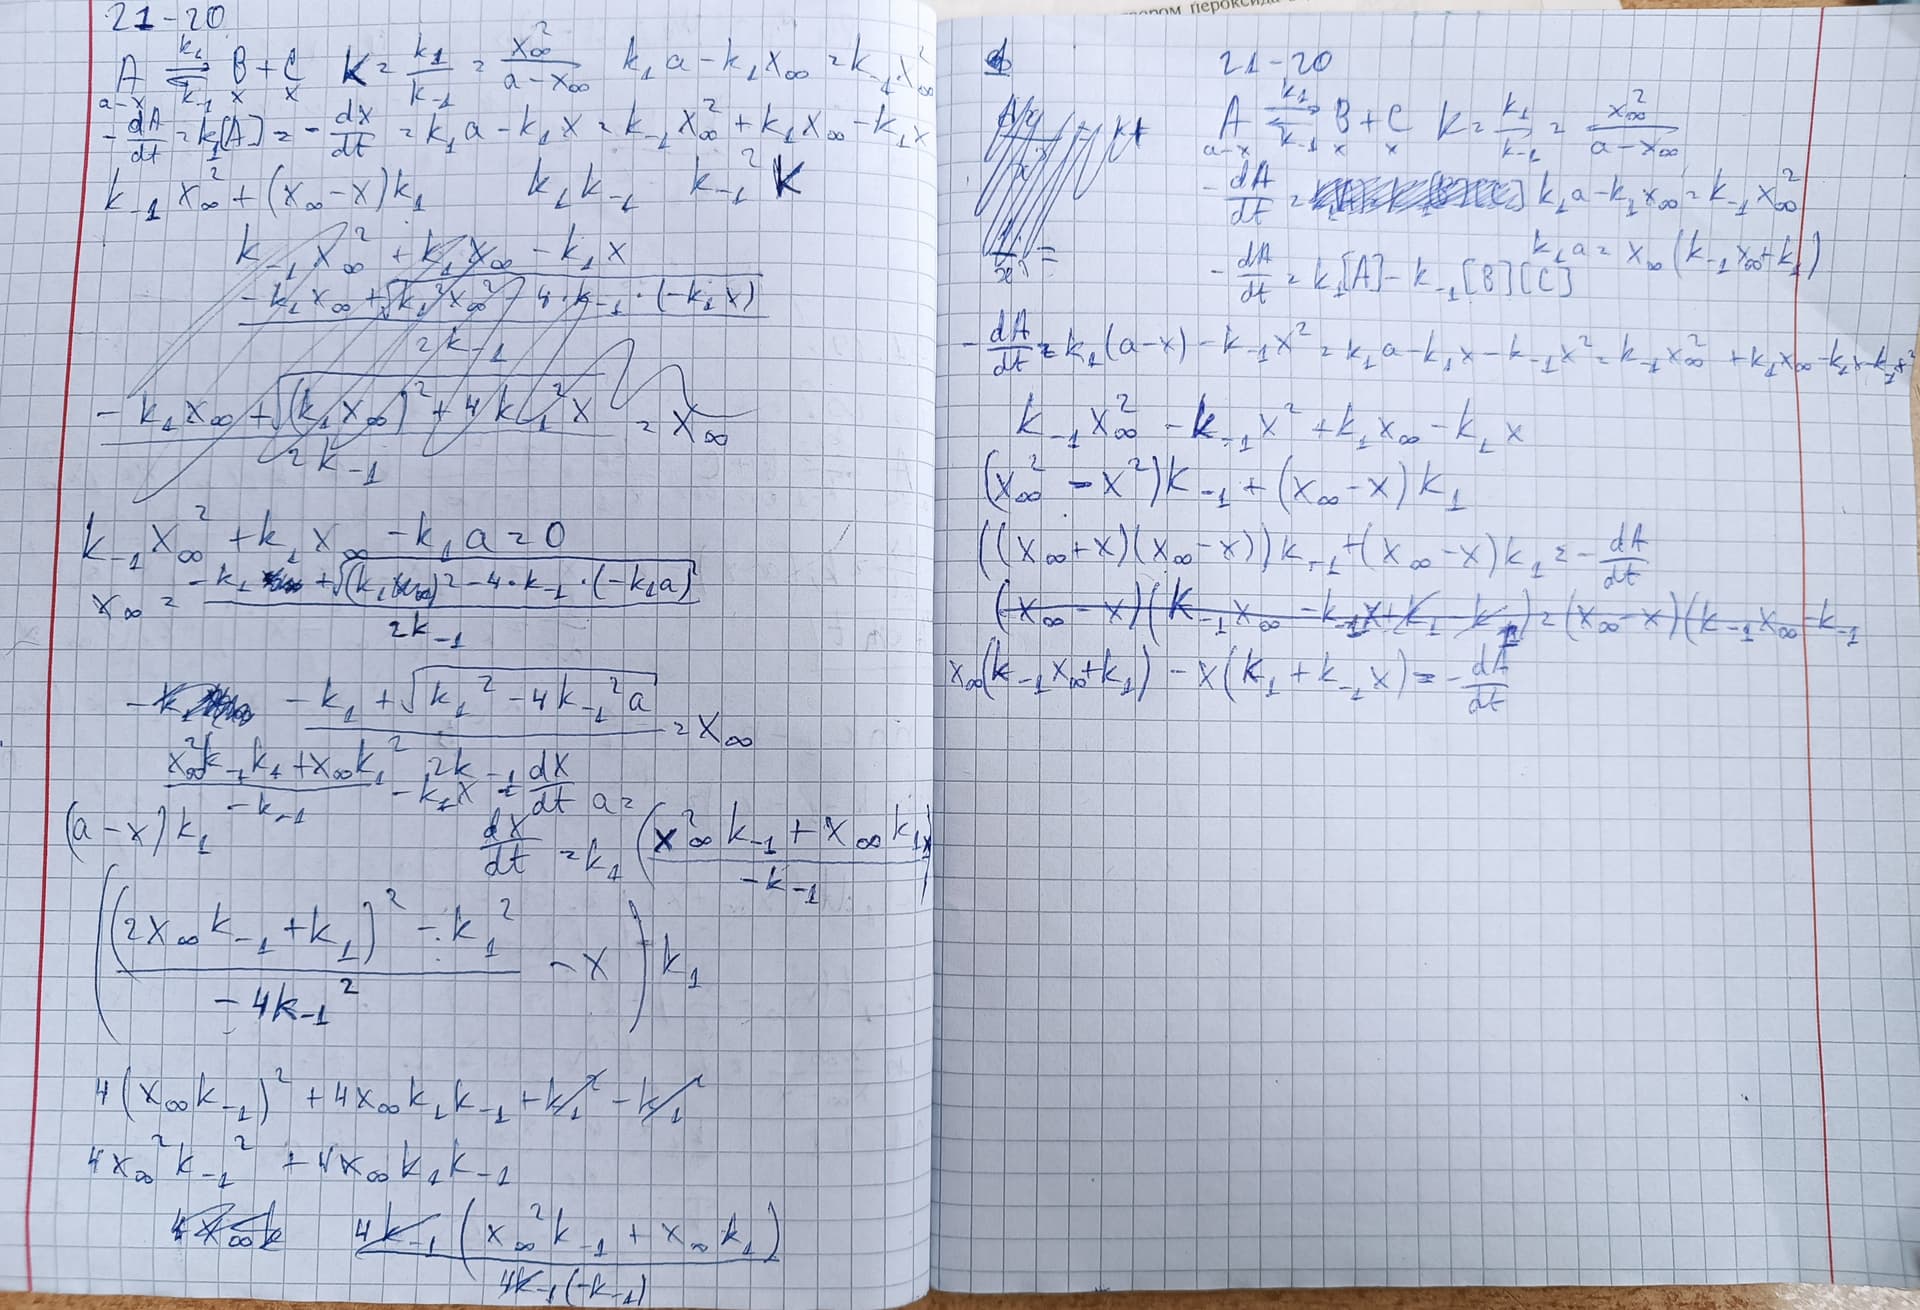 21-20
A ⇄ B + C K = k₁/k₋₁ = x∞²/(a-x∞) k₁a - k₁x∞ = k₋₁·x∞²
a-x k₁ k₋₁ x x
-dA/dt = k₁[A] = -dx/dt = k₁a - k₁x = k₋₁x∞² + k₁x∞ - k₁x
k₋₁x∞² + (x∞-x)k₁ k₁k₋₁ k₋₁²K
k₋₁x∞² + k₁x∞ - k₁x
(-k₁x∞ + √(k₁²x∞² - 4·k₋₁·(-k₁x)))/(2k₋₁)
(-k₁x∞ + √((k₁x∞)² + 4k₋₁²x))/(2k₋₁) = x∞
k₋₁x∞² + k₁x∞ - k₁a = 0
x∞ = (-k₁ + √((k₁)² - 4·k₋₁·(-k₁a)))/(2k₋₁)
(-k₁ + √(k₁² - 4k₋₁²a))/(2k₋₁) = x∞
(x∞²k₋₁k₁ + x∞k₁²)/(-k₋₁) - k₁x = dx/dt a=
(a-x)k₁ dx/dt = k₁((x∞²k₋₁ + x∞k₁)/(-k₋₁)
(((2x∞k₋₁ + k₁)² - k₁²)/(-4k₋₁²) - x)k₁
4(x∞k₋₁)² + 4x∞k₁k₋₁ + k₁² - k₁²
4x∞²k₋₁² + 4x∞k₁k₋₁
4x∞k 4k₋₁(x∞²k₋₁ + x∞k₁)/(4k₋₁(-k₋₁))
пероксида
21-20
A ⇄ B + C K = k₁/k₋₁ = x∞²/(a-x∞)
a-x k₁ k₋₁ x x
-dA/dt = k₁a - k₁x∞ = k₋₁x∞²
k₁a = x∞(k₋₁x∞ + k₁)
-dA/dt = k₁[A] - k₋₁[B][C]
-dA/dt = k₁(a-x) - k₋₁x² = k₁a - k₁x - k₋₁x² = k₋₁x∞² + k₁x∞ - k₁x - k₋₁x²
k₋₁x∞² - k₋₁x² + k₁x∞ - k₁x
(x∞² - x²)k₋₁ + (x∞-x)k₁
((x∞+x)(x∞-x))k₋₁ + (x∞-x)k₁ = -dA/dt
(x∞-x)(k₋₁x∞ - k₋₁x + k₁ - k₁) = (x∞-x)(k₋₁x∞ - k₋₁
x∞(k₋₁x∞ + k₁) - x(k₁ + k₋₁x) = -dA/dt